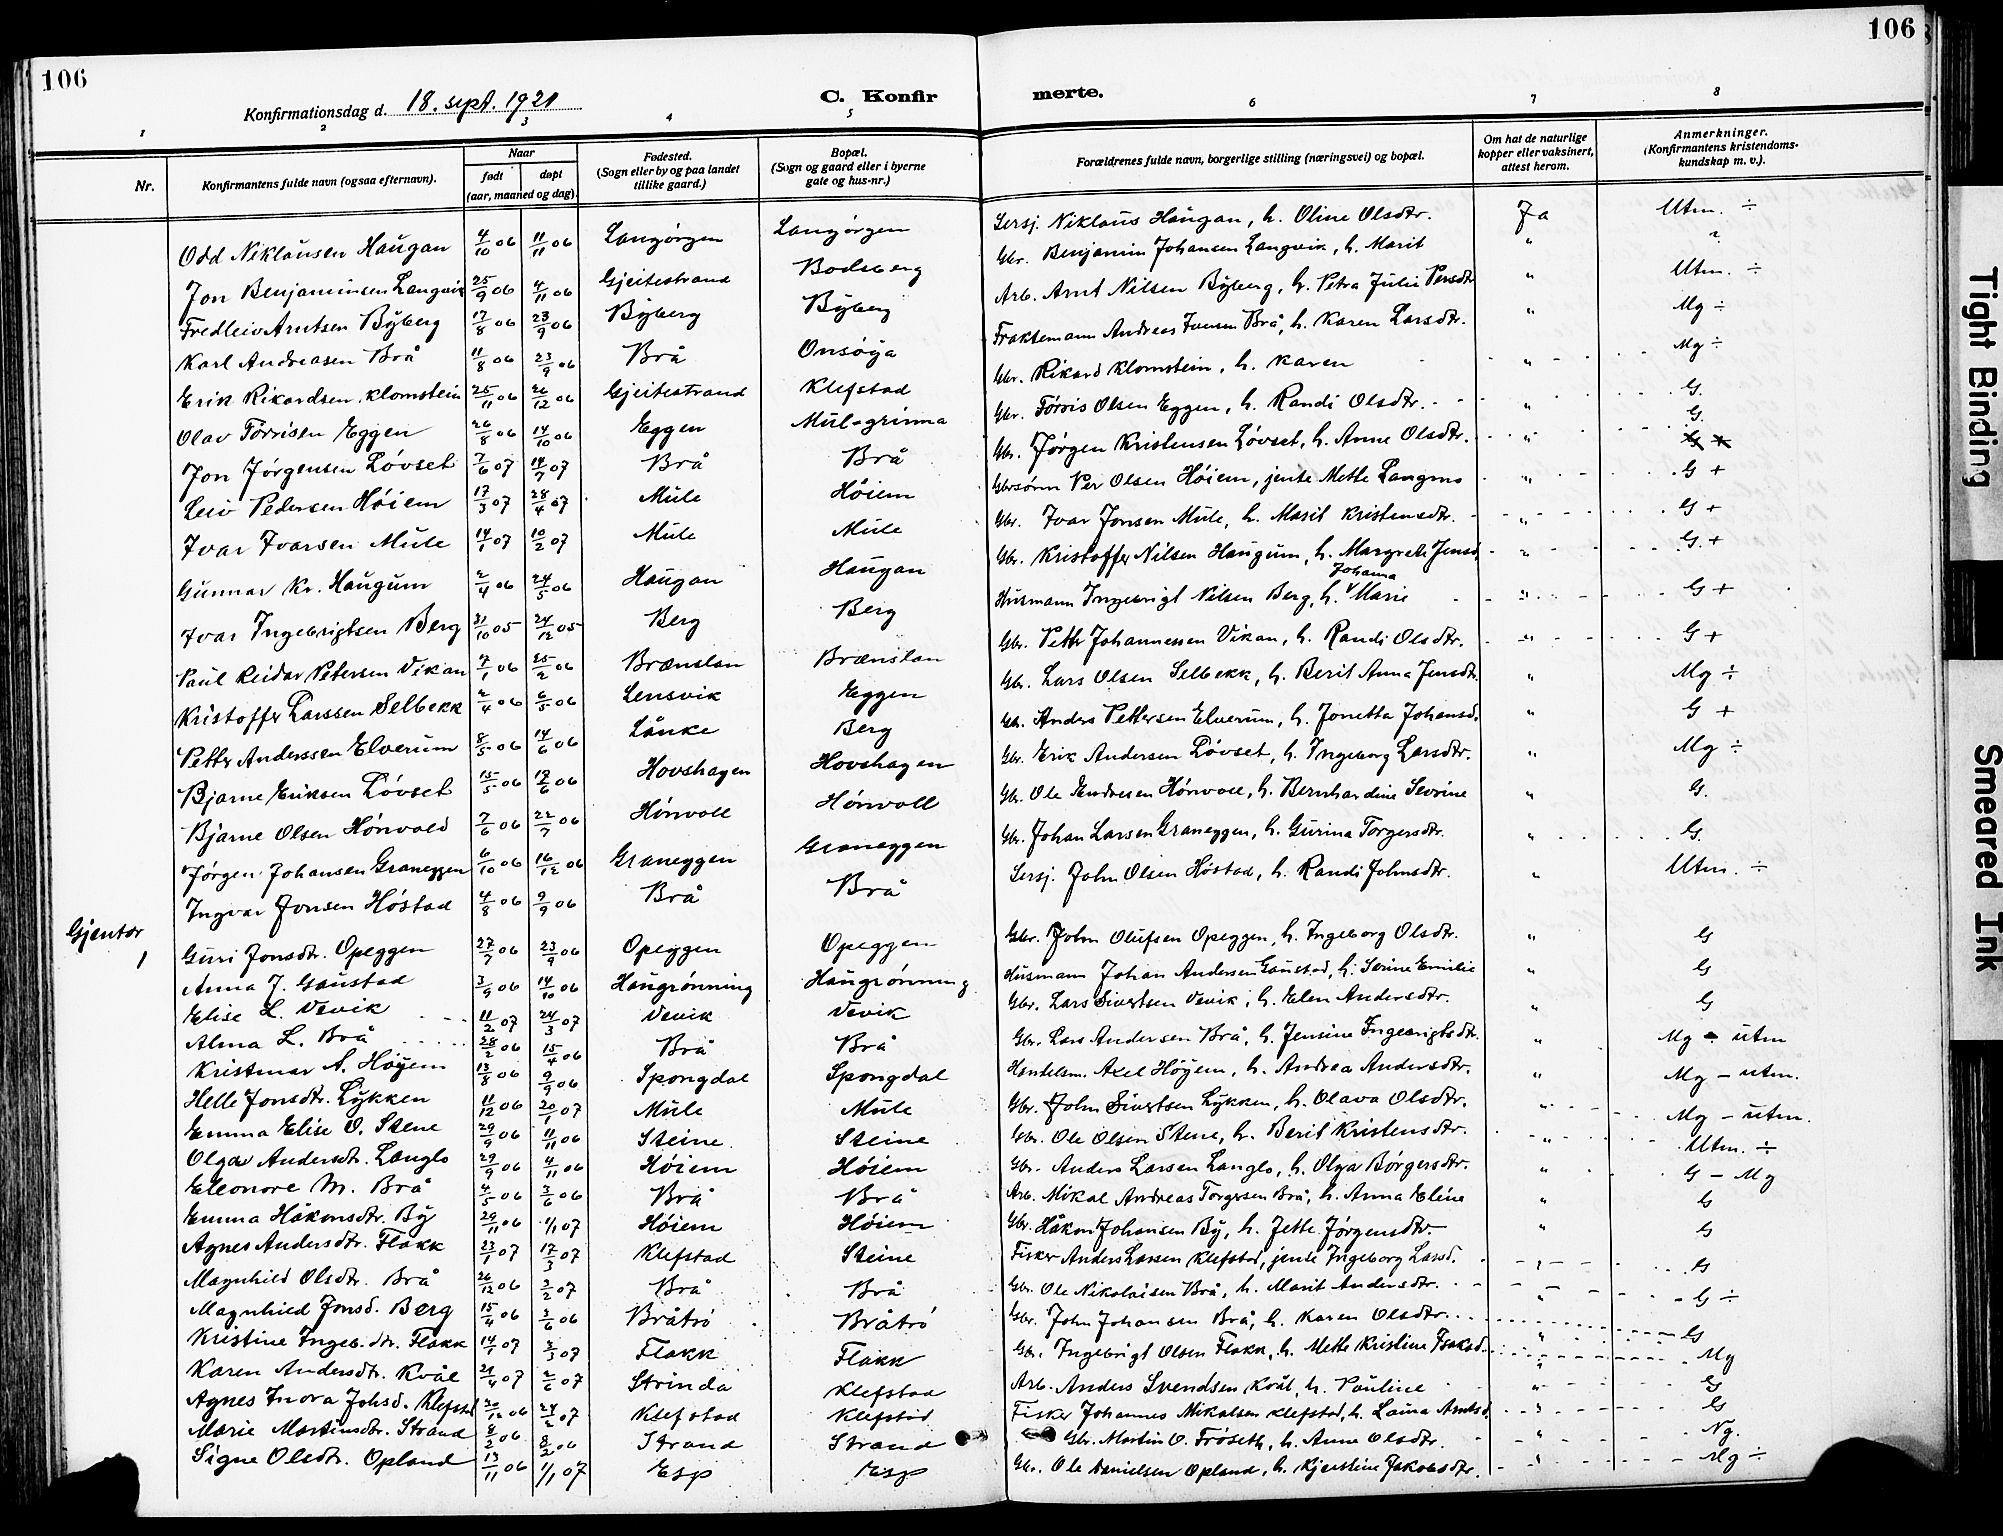 106
106
Konfirmationsdag d. 18. sept. 1921
C. Konfirmerte.
1 2 3 4 5 6 7 8
Nr. | Konfirmantens fulde navn (ogsaa efternavn). | Naar født døpt (aar, maaned og dag). | Fødested. (Sogn eller by og paa landet tillike gaard.) | Bopæl. (Sogn og gaard eller i byerne gate og hus-nr.) | Forældrenes fulde navn, borgerlige stilling (næringsvei) og bopæl. | Om hat de naturlige kopper eller vaksinert, attest herom. | Anmerkninger. (Konfirmantens kristendomskundskap m. v.).
Odd Niklausen Haugan 4/10 06 11/11 06 Langørgen Langørgen Sersj. Niklaus Haugan, h. Oline Olsdtr. Ja Utm. ÷
Jon Benjaminsen Langvik 25/9 06 4/11 06 Gjeitestrand Bodsberg Gbr. Benjamin Johansen Langvik, h. Marit " "
Fredleiv Arntsen Byberg 17/8 06 23/9 06 Byberg Byberg Arb. Arnt Nilsen Byberg, h. Petra Julie Persdtr " Utm. ÷
Karl Andreasen Brå 11/8 06 23/9 06 Brå Onsøya Fraktemann Andreas Iversen Brå, h. Karen Larsdtr. " Mg ÷
Erik Rikardsen Klomstein 25/11 06 26/12 06 Gjeitestrand Klefstad Gbr. Rikard Klomstein, h. Karen " Mg ÷
Olav Tørrisen Eggen 26/8 06 14/10 06 Eggen Mul-grinna Gbr. Tørris Olsen Eggen, h. Randi Olsdtr. " G.
Jon Jørgensen Løvset 7/6 07 14/7 07 Brå Brå Gbr. Jørgen Kristensen Løvset, h. Anne Olsdtr. " G.
Leiv Pedersen Høiem 17/3 07 28/4 07 Mule Høiem Gbrsønn Per Olsen Høiem, jente Mette Langmo " G +
Ivar Ivarsen Mule 14/1 07 10/2 07 Mule Mule Gbr. Ivar Jonsen Mule, h. Marit Kristensdtr. " G +
Gunnar Kr. Haugum 2/4 06 24/5 06 Haugan Haugan Gbr. Kristoffer Nilsen Haugum, h. Margrete Jensd. " G. +
Ivar Ingebrigtsen Berg 31/10 05 24/12 05 Berg Berg Husmann Ingebrigt Nilsen Berg, h. Johanna Marie " G +
Paul Reidar Petersen Vikan 7/1 06 25/2 06 Brænslan Brænslan Gbr. Petter Johannesen Vikan, h. Randi Olsdtr. " G +
Kristoffer Larssen Selbekk 2/4 06 6/5 06 Lensvik Eggen Gbr. Lars Olsen Selbekk, h. Berit Anna Jensdtr. " Mg ÷
Petter Anderssen Elverum 8/5 06 14/6 06 Lånke Berg Gb. Anders Pettersen Elverum, h. Jonetta Johansd. " G +
Bjarne Eriksen Løvset 15/5 06 17/6 06 Hovshagen Hovshagen Gbr. Erik Andersen Løvset, h. Ingeborg Larsdtr. " Mg ÷
Bjarne Olsen Hønvold 7/6 06 22/7 06 Hønvoll Hønvoll Gbr. Ole Endresen Hønvoll, h. Bernhardine Sevrine " G.
Jørgen Johansen Graneggen 6/10 06 16/12 06 Graneggen Graneggen Gbr. Johan Larsen Graneggen, h. Gurina Torgersdtr. " G.
Ingvar Jonsen Høstad 4/8 06 9/9 06 Brå Brå Sersj. John Olsen Høstad, h. Randi Johnsdtr. " Utm. ÷
Gjenter
1 Guri Jonsdtr. Opeggen 27/7 06 23/9 06 Opeggen Opeggen Gbr. John Olufsen Opeggen, h. Ingeborg Olsdtr. " G
Anna J. Gaustad 3/9 06 14/10 06 Haugrønning Haugrønning Husmann Johan Andersen Gaustad, h. Serine Emilie G
Elise L. Vevik 11/2 07 24/3 07 Vevik Vevik Gbr. Lars Sivertsen Vevik, h. Elen Andersdtr. " G
Alma L. Brå 28/2 06 15/4 06 Brå Brå Gbr. Lars Andersen Brå, h. Jensine Ingebrigtsdtr. " Mg - utm
Kristmar A. Høyem 13/8 06 9/9 06 Spongdal Spongdal Handelsm. Axel Høyem, h. Andrea Andersdtr. " Mg - utm.
Helle Jonsdtr. Lykken 11/12 06 20/1 07 Mule Mule Gbr. John Sivertsen Lykken, h. Olava Olsdtr. " Mg - utm.
Emma Elise O. Stene 29/9 06 11/11 06 Steine Steine Gbr. Ole Olsen Stene, h. Berit Kristensdtr. " Utm. ÷
Olga Andersdtr. Langlo 29/9 06 4/11 06 Høiem Høiem Gbr. Anders Larsen Langlo, h. Olga Børgersdtr. " G - Mg
Eleonore M. Brå 4/5 06 3/6 06 Brå Brå Arb. Mikal Andreas Torgersen Brå, h. Anna Eline " G
Emma Håkonsdtr. By 29/11 06 1/1 07 Høiem Høiem Gbr. Håkon Johansen By, h. Jette Jørgensdtr. " G
Agnes Andersdtr. Flakk 23/1 07 17/3 07 Klefstad Steine Fisker Anders Larsen Klefstad, jente Ingeborg Larsd. " G
Magnhild Olsdtr. Brå 26/12 06 3/2 07 Brå Brå Gbr. Ole Nikolaisen Brå, h. Marit Andersdtr. " G ÷
Magnhild Jonsd. Berg 15/4 06 3/6 06 Bråtrø Bråtrø Gbr. John Johansen Brå, h. Karen Olsdtr. " G
Kristine Ingeb.dtr. Flakk 14/1 07 3/3 07 Flakk Flakk Gbr. Ingebrigt Olsen Flakk, h. Mette Kristine Isaksd. " Mg
Karen Andersdtr. Kvål 21/4 07 2/6 07 Strinda Klefstad Arb. Anders Svendsen Kvål, h. Pauline " G
Agnes Inora Johsd. Klefstad 30/12 06 24/2 07 Klefstad Klefstad Fisker Johannes Mikalsen Klefstad, h. Laura Arntsd. " G
Marie Martinsdtr. Strand 8/2 06 8/2 06 Strand Strand Gbr. Martin O. Frøseth, h. Anne Olsdtr. " Ng.
Signe Olsdtr. Opland 13/11 06 1/1 07 Esp Esp Gbr. Ole Danielsen Opland, h. Kjerstine Jakobsdtr. " Mg ÷
Tight Binding
Smeared Ink